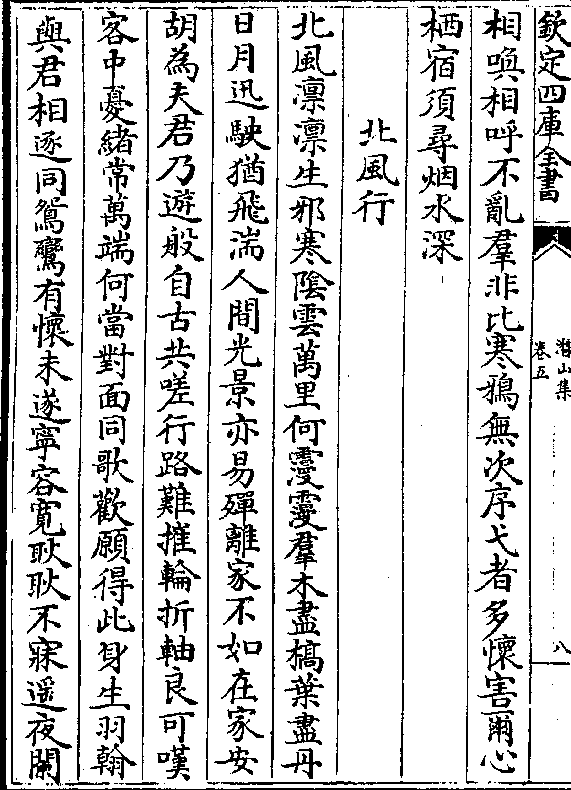 欽定四庫全書
潛山集
卷五
八
相喚相呼不亂羣非比寒鴉無次序弋者多懷害爾心
栖宿須尋烟水深
北風行
北風凛凛生邪寒陰雲萬里何靉靆羣木盡槁葉盡丹
日月迅駛猶飛湍人間光景亦易殫離家不如在家安
胡為夫君乃遊般自古共嗟行路難摧輪折軸良可嘆
客中憂緒常萬端何當對面同歌歡願得此身生羽翰
與君相逐同鴛鸞有懷未遂寧容寛耿耿不寐遥夜闌